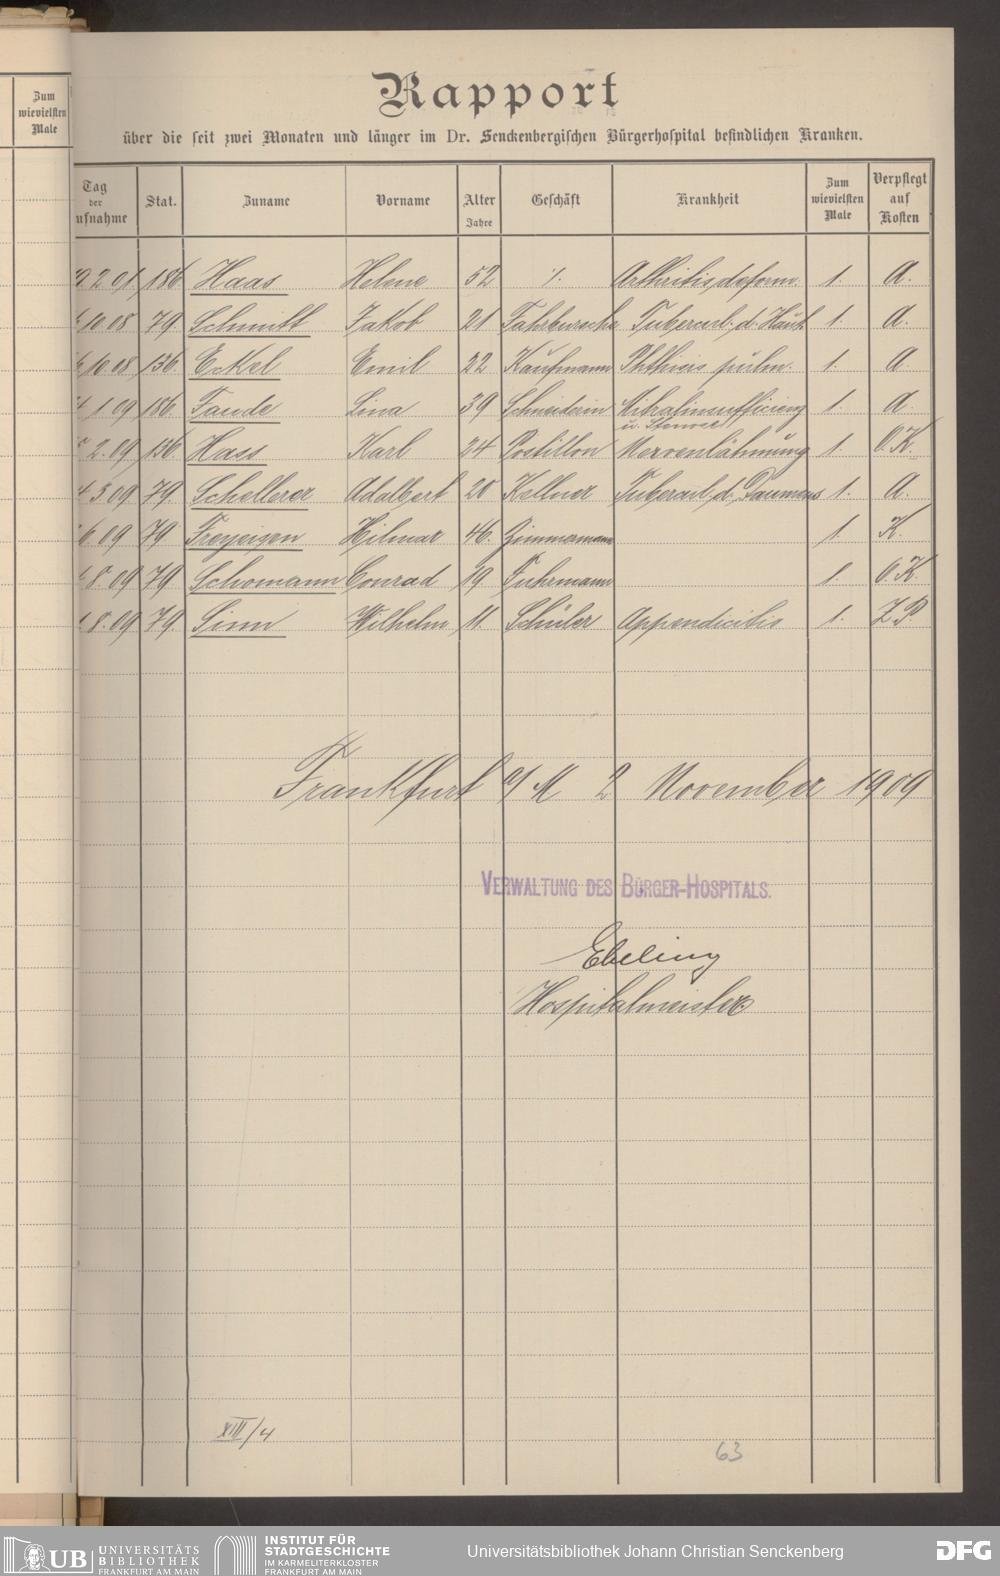 Zum
wievielsten
Male
Rapport
über die seit zwei Monaten und länger im Dr. Senckenbergischen Bürgerhospital befindlichen Kranken.
Tag der ufnahme Stat. Zuname Vorname Alter Jahre Geschäft Krankheit Zum wievielsten Male Verpflegt auf Kosten
9. 2 01 186 Haas Helene 52 ·/. Arthritis deform. 1. A.
10 08 79 Schmitt Jakob 21 Fahrbursche Tubercul. d. Haut 1. A.
10 08 136 Eckel Emil 22 Kaufmann Phthisis pulm. 1. A
1 09 186 Taude Lina 39 Schneiderin Mitralinsufficienz 1. A.
u.
2. 09 136 Hass Karl 24 Postillon Nervenlähmung 1. O. K.
5 09 79. Schellerer Adalbert 20 Kellner Tubercul. d. Daumens 1. A.
6. 09 79 Freyeisen Hilmar 46. Zimmermann 1. K.
8. 09 79 Schomann Conrad 19 Fuhrmann 1. O. K
8. 09 79. Sinn Wilhelm 11. Schüler Appendicitis 1. Z P
Frankfurt a/M 2 November 1909
VERWALTUNG DES BÜRGER-HOSPITALS.
Ebeling
Hospitalmeister
XIII/4
63
UB UNIVERSITÄTS BIBLIOTHEK FRANKFURT AM MAIN
INSTITUT FÜR STADTGESCHICHTE IM KARMELITERKLOSTER FRANKFURT AM MAIN
Universitätsbibliothek Johann Christian Senckenberg
DFG